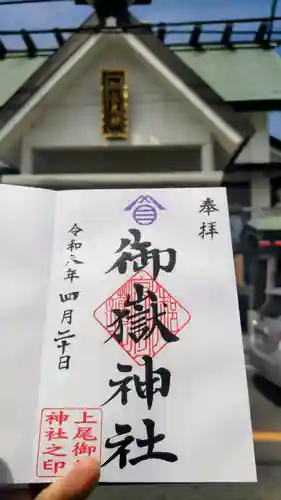 奉拝
御嶽神社
令和六年四月二十日
上尾御嶽
神社之印